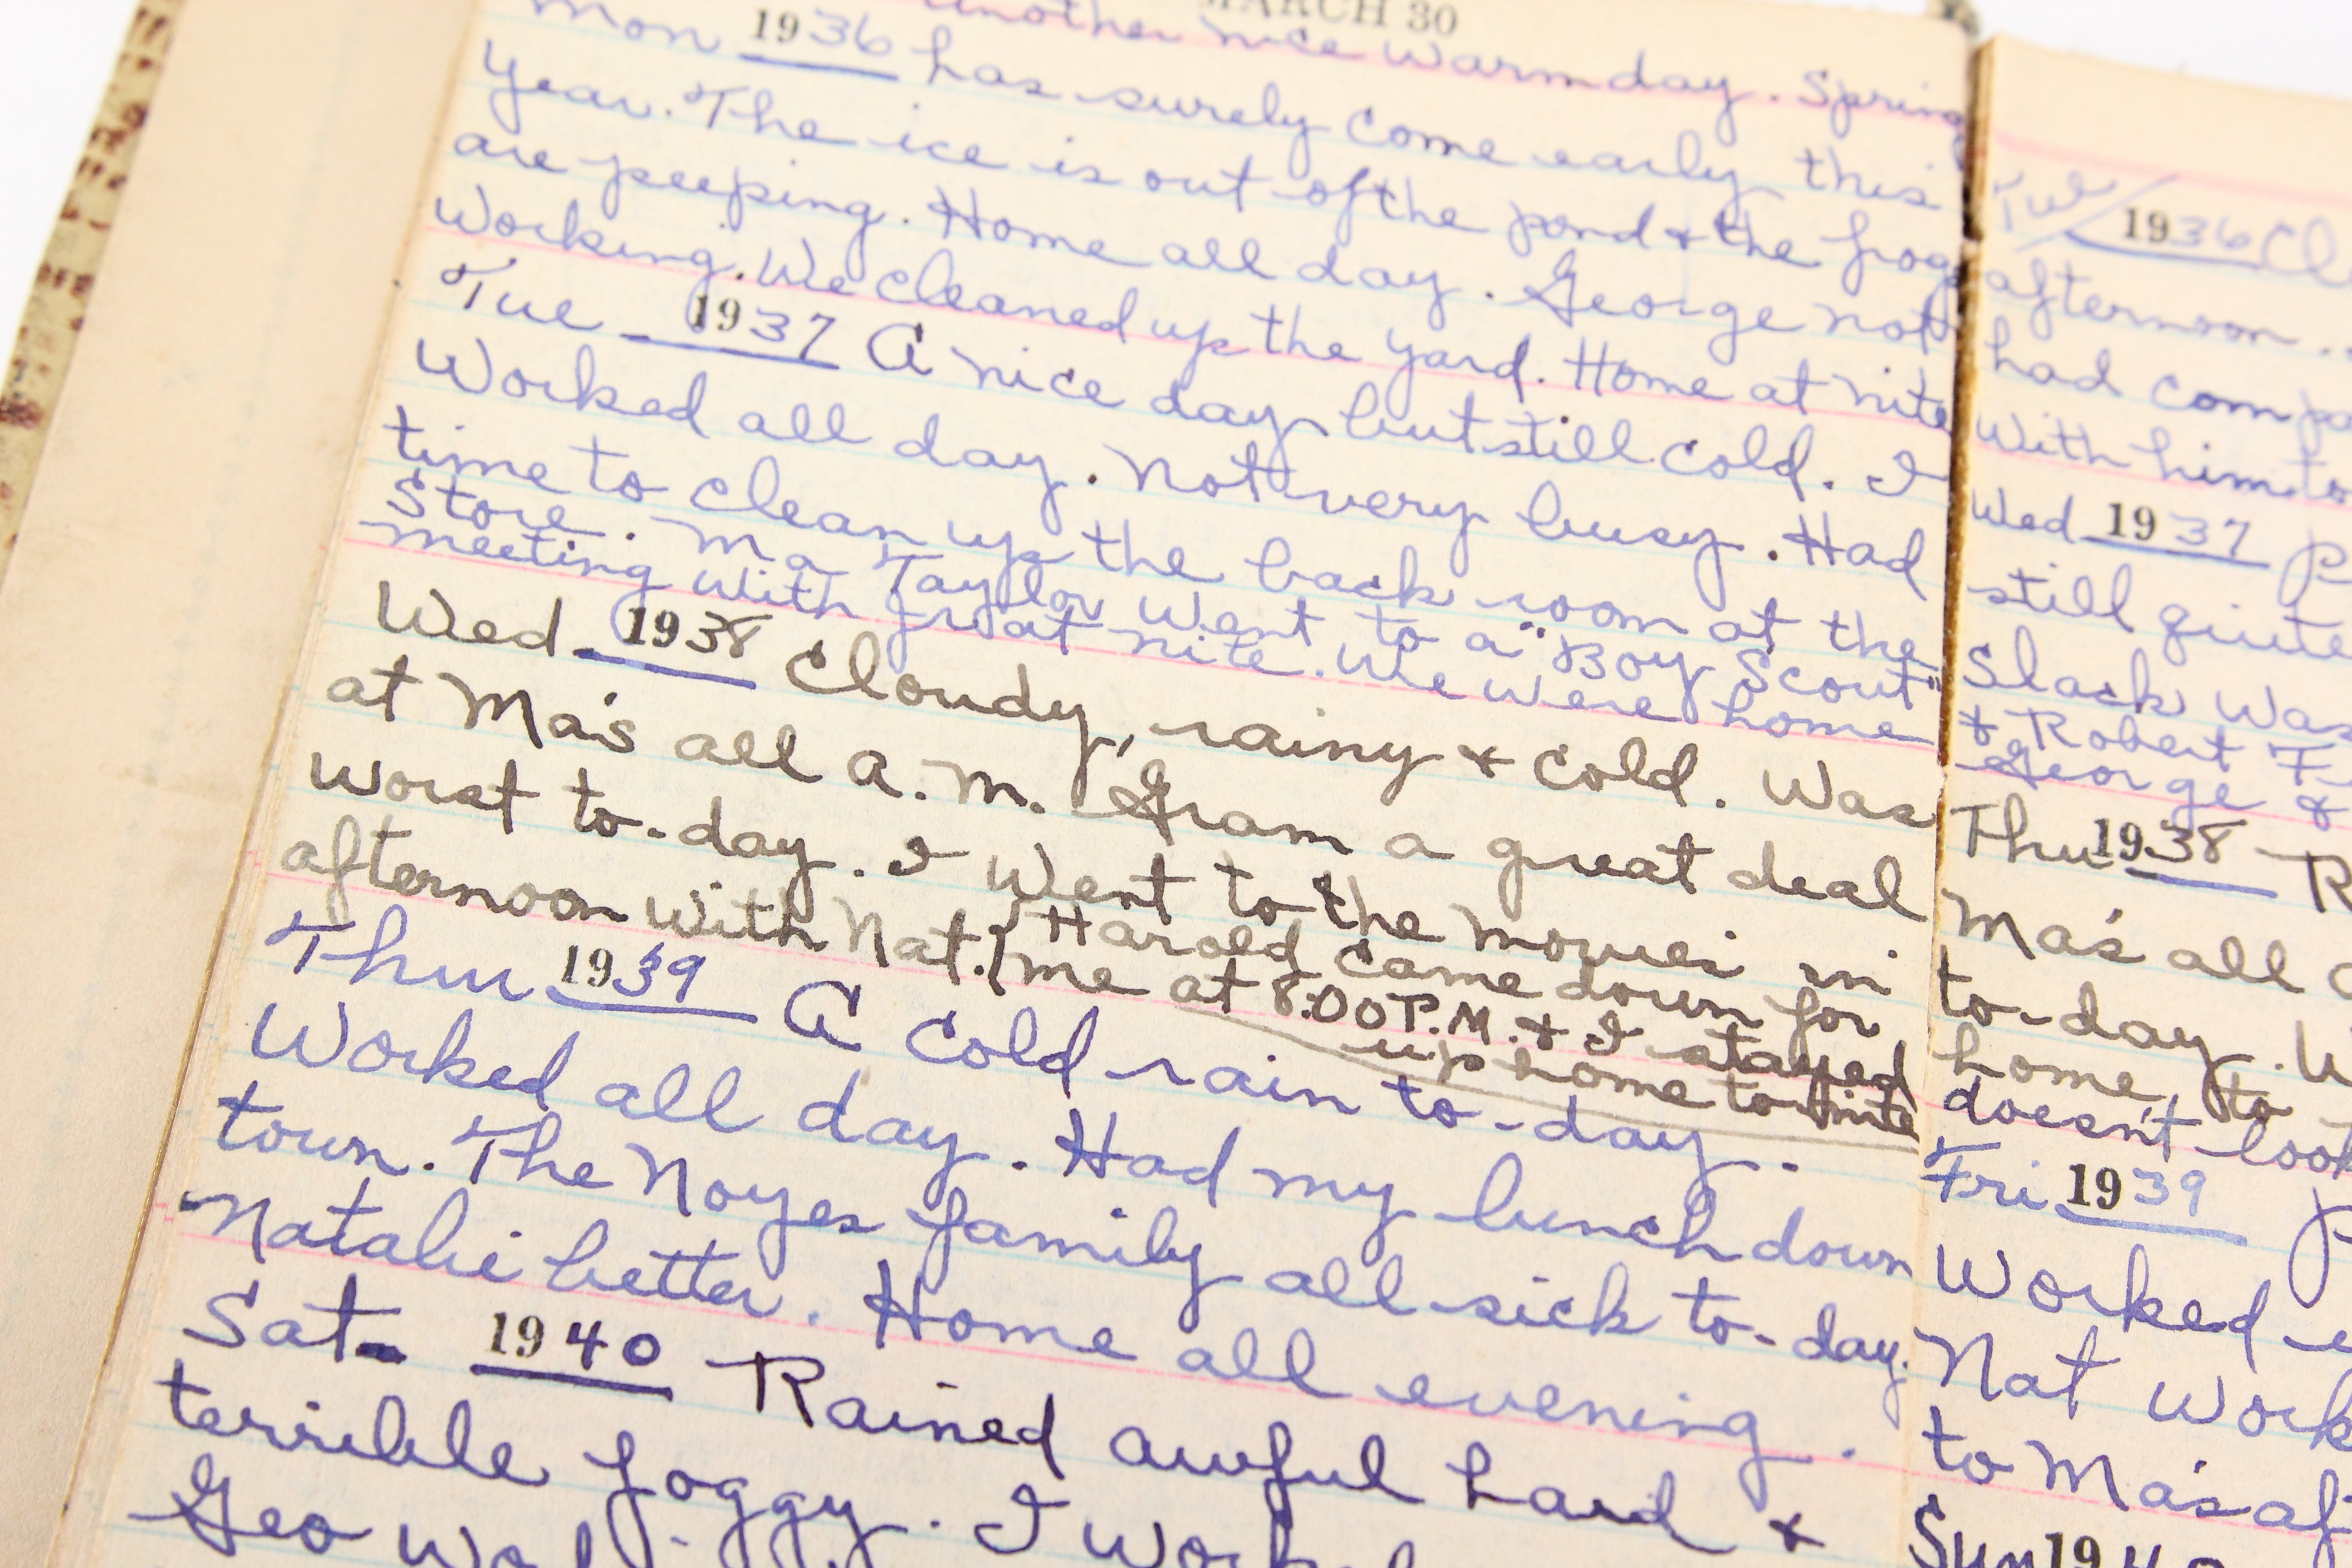 MARCH 30
Another nice warm day. Spring
Mon 1936 has surely come early this
Year. The ice is out of the pond & the frogs
are peeping. Home all day. George not
Working. We cleaned up the yard. Home at nite
Tue 1937 A nice day but still cold. I
Worked all day. Not very busy. Had
time to clean up the back room at the
Store. Ma Taylor went to a "Boy Scout"
meeting with at nite. We were home
Wed 1938 Cloudy, rainy & cold. Was
at Ma's all A.M. Gram a great deal
worst to-day. I went to the movies in
afternoon with Nat. Harold came down for
me at 8:00 P.M. & I stayed
up home to nite
Thur 1939 A cold rain to-day.
Worked all day. Had my lunch down
town. The Noyes family all sick to-day.
Natalie better. Home all evening.
Sat 1940 Rained awful hard &
terrible foggy. I
Geo
Tue 1936 Cl
afternoon.
had comp
With him to
Wed 1937 P
still quite
Slack was
& Robert F
George &
Thu 1938 R
Ma's all a
to-day. W
home to
doesn't look
Fri 1939 P
Worked e
Nat work
to Ma's af
Sun 1940